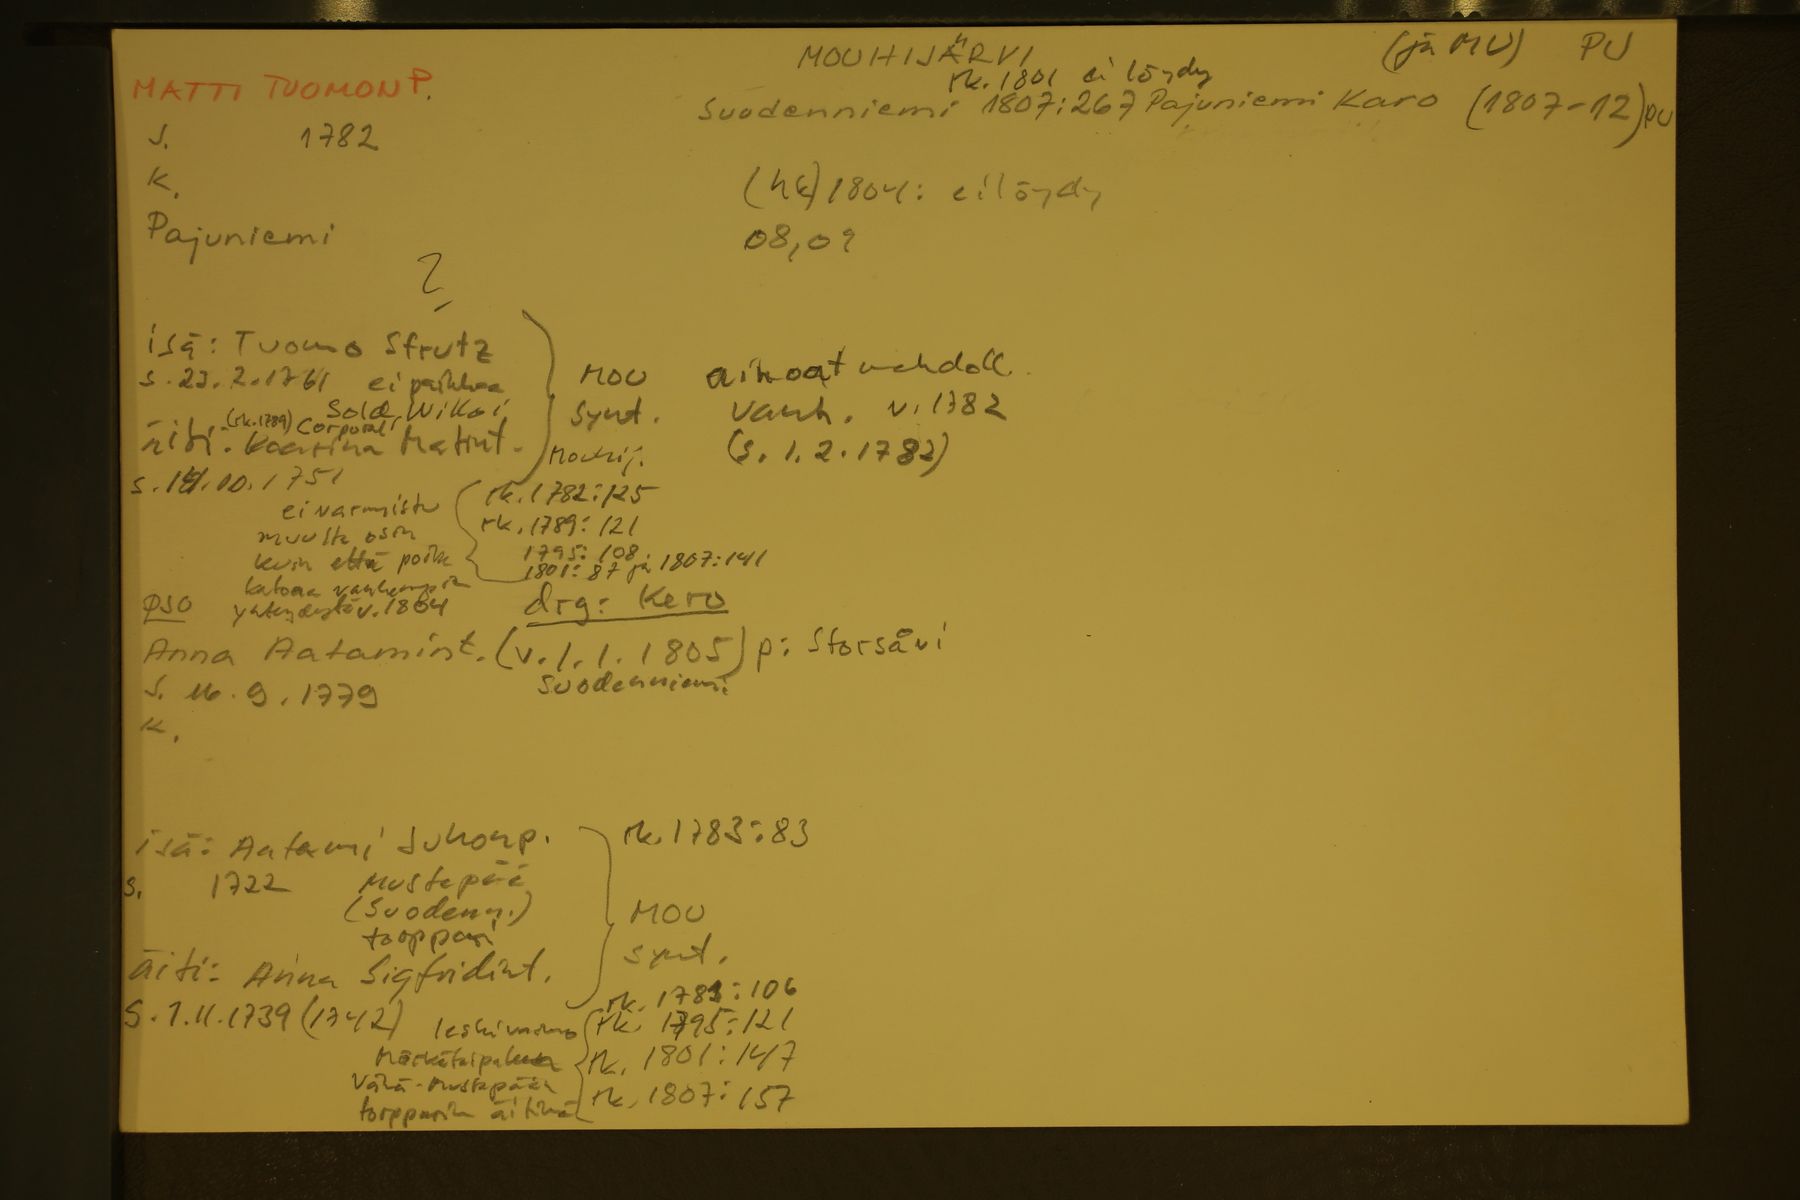 MOUHIJÄRVI
(ja MU) PU
MATTI TUOMONP.
rk. 1801 ei löydy
Suodenniemi 1807:267 Pajuniemi Karo (1807-12) PU
s. 1782
k.
(hk) 1804: ei löydy
Pajuniemi
08,09
?
isä: Tuomo Strutz
s. 23.2.1761 ei paikkaa
MOU
synt.
Mouhij.
ainoat mahdoll.
vanh. v. 1782
(s. 1.2.1782)
Sold. Wikoi
(rk.1789) Corporal
äiti: Kaarina Matint.
s. 14.10.1751
ei varmistu
muulta osin
kuin että poika
katoaa vanhempien
yhteydestä v. 1804
rk. 1782:125
rk. 1789:121
1795:108
1801:87 ja 1807:141
drg: Kero
PSO
Anna Aatamint. (v. 1.1.1805) p: Storsåvi
Suodenniemi
s. 16.9.1779
k.
isä: Aatami Juhonp.
rk. 1783:83
s. 1722 Mustapää
(Suodenn.)
torppari
MOU
synt.
äiti: Anna Sigfridint.
s. 1.11.1739 (1742)
leskivaimo
Vähä-Mustapään
torpparin äitinä
rk. 1789:106
rk. 1795:121
rk. 1801:147
rk. 1807:157